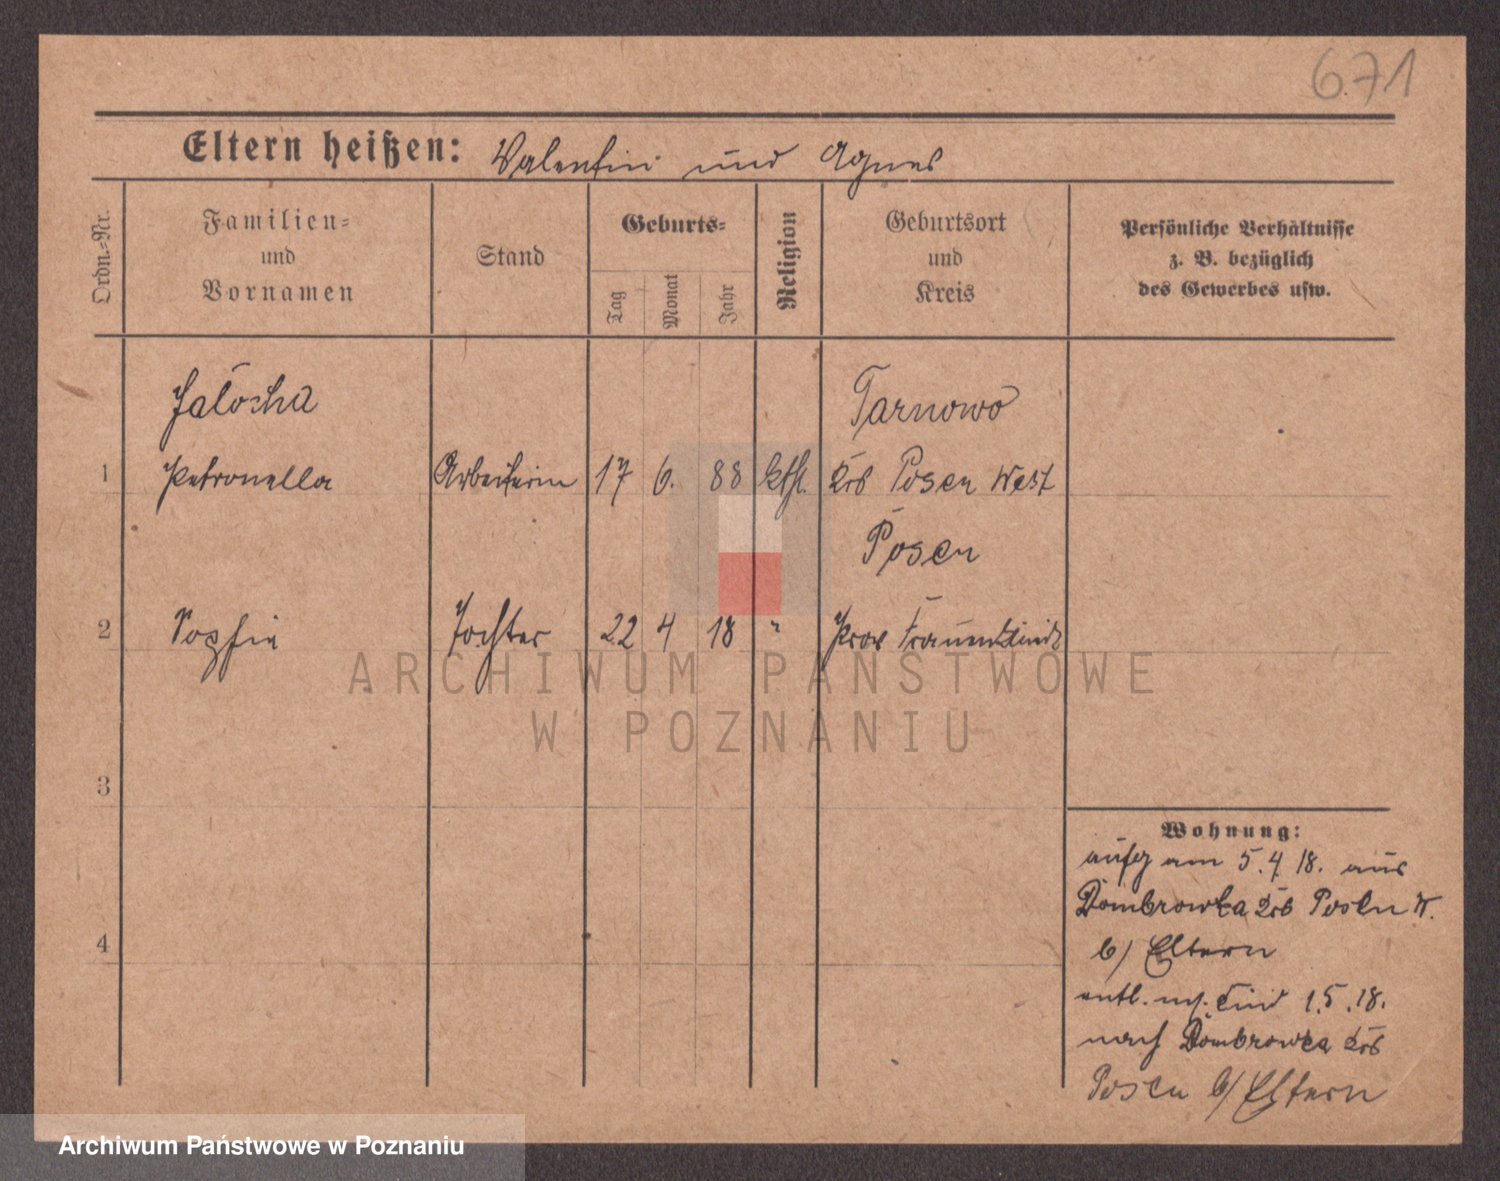 671
Eltern heißen: Valentin und Agnes
Ordn.-Nr.
Familien-
und
Vornamen
Stand
Geburts-
Tag
Monat
Jahr
Religion
Geburtsort
und
Kreis
Persönliche Verhältnisse
z. B. bezüglich
des Gewerbes usw.
Tarnowo
1 Petronella Arbeiterin 17 6. 88 kthl. Krs Posen West
Posen
2 Sophie Tochter 22 4 18 " Prov Frauenklinik
ARCHIWUM PAŃSTWOWE
W POZNANIU
3
4
Wohnung:
aufg am 5.4.18. aus
Dombrowka Krs Posen W.
b/ Eltern
entl. m. Kind 1.5.18.
nach Dombrowka Krs
Posen b/ Eltern
Archiwum Państwowe w Poznaniu